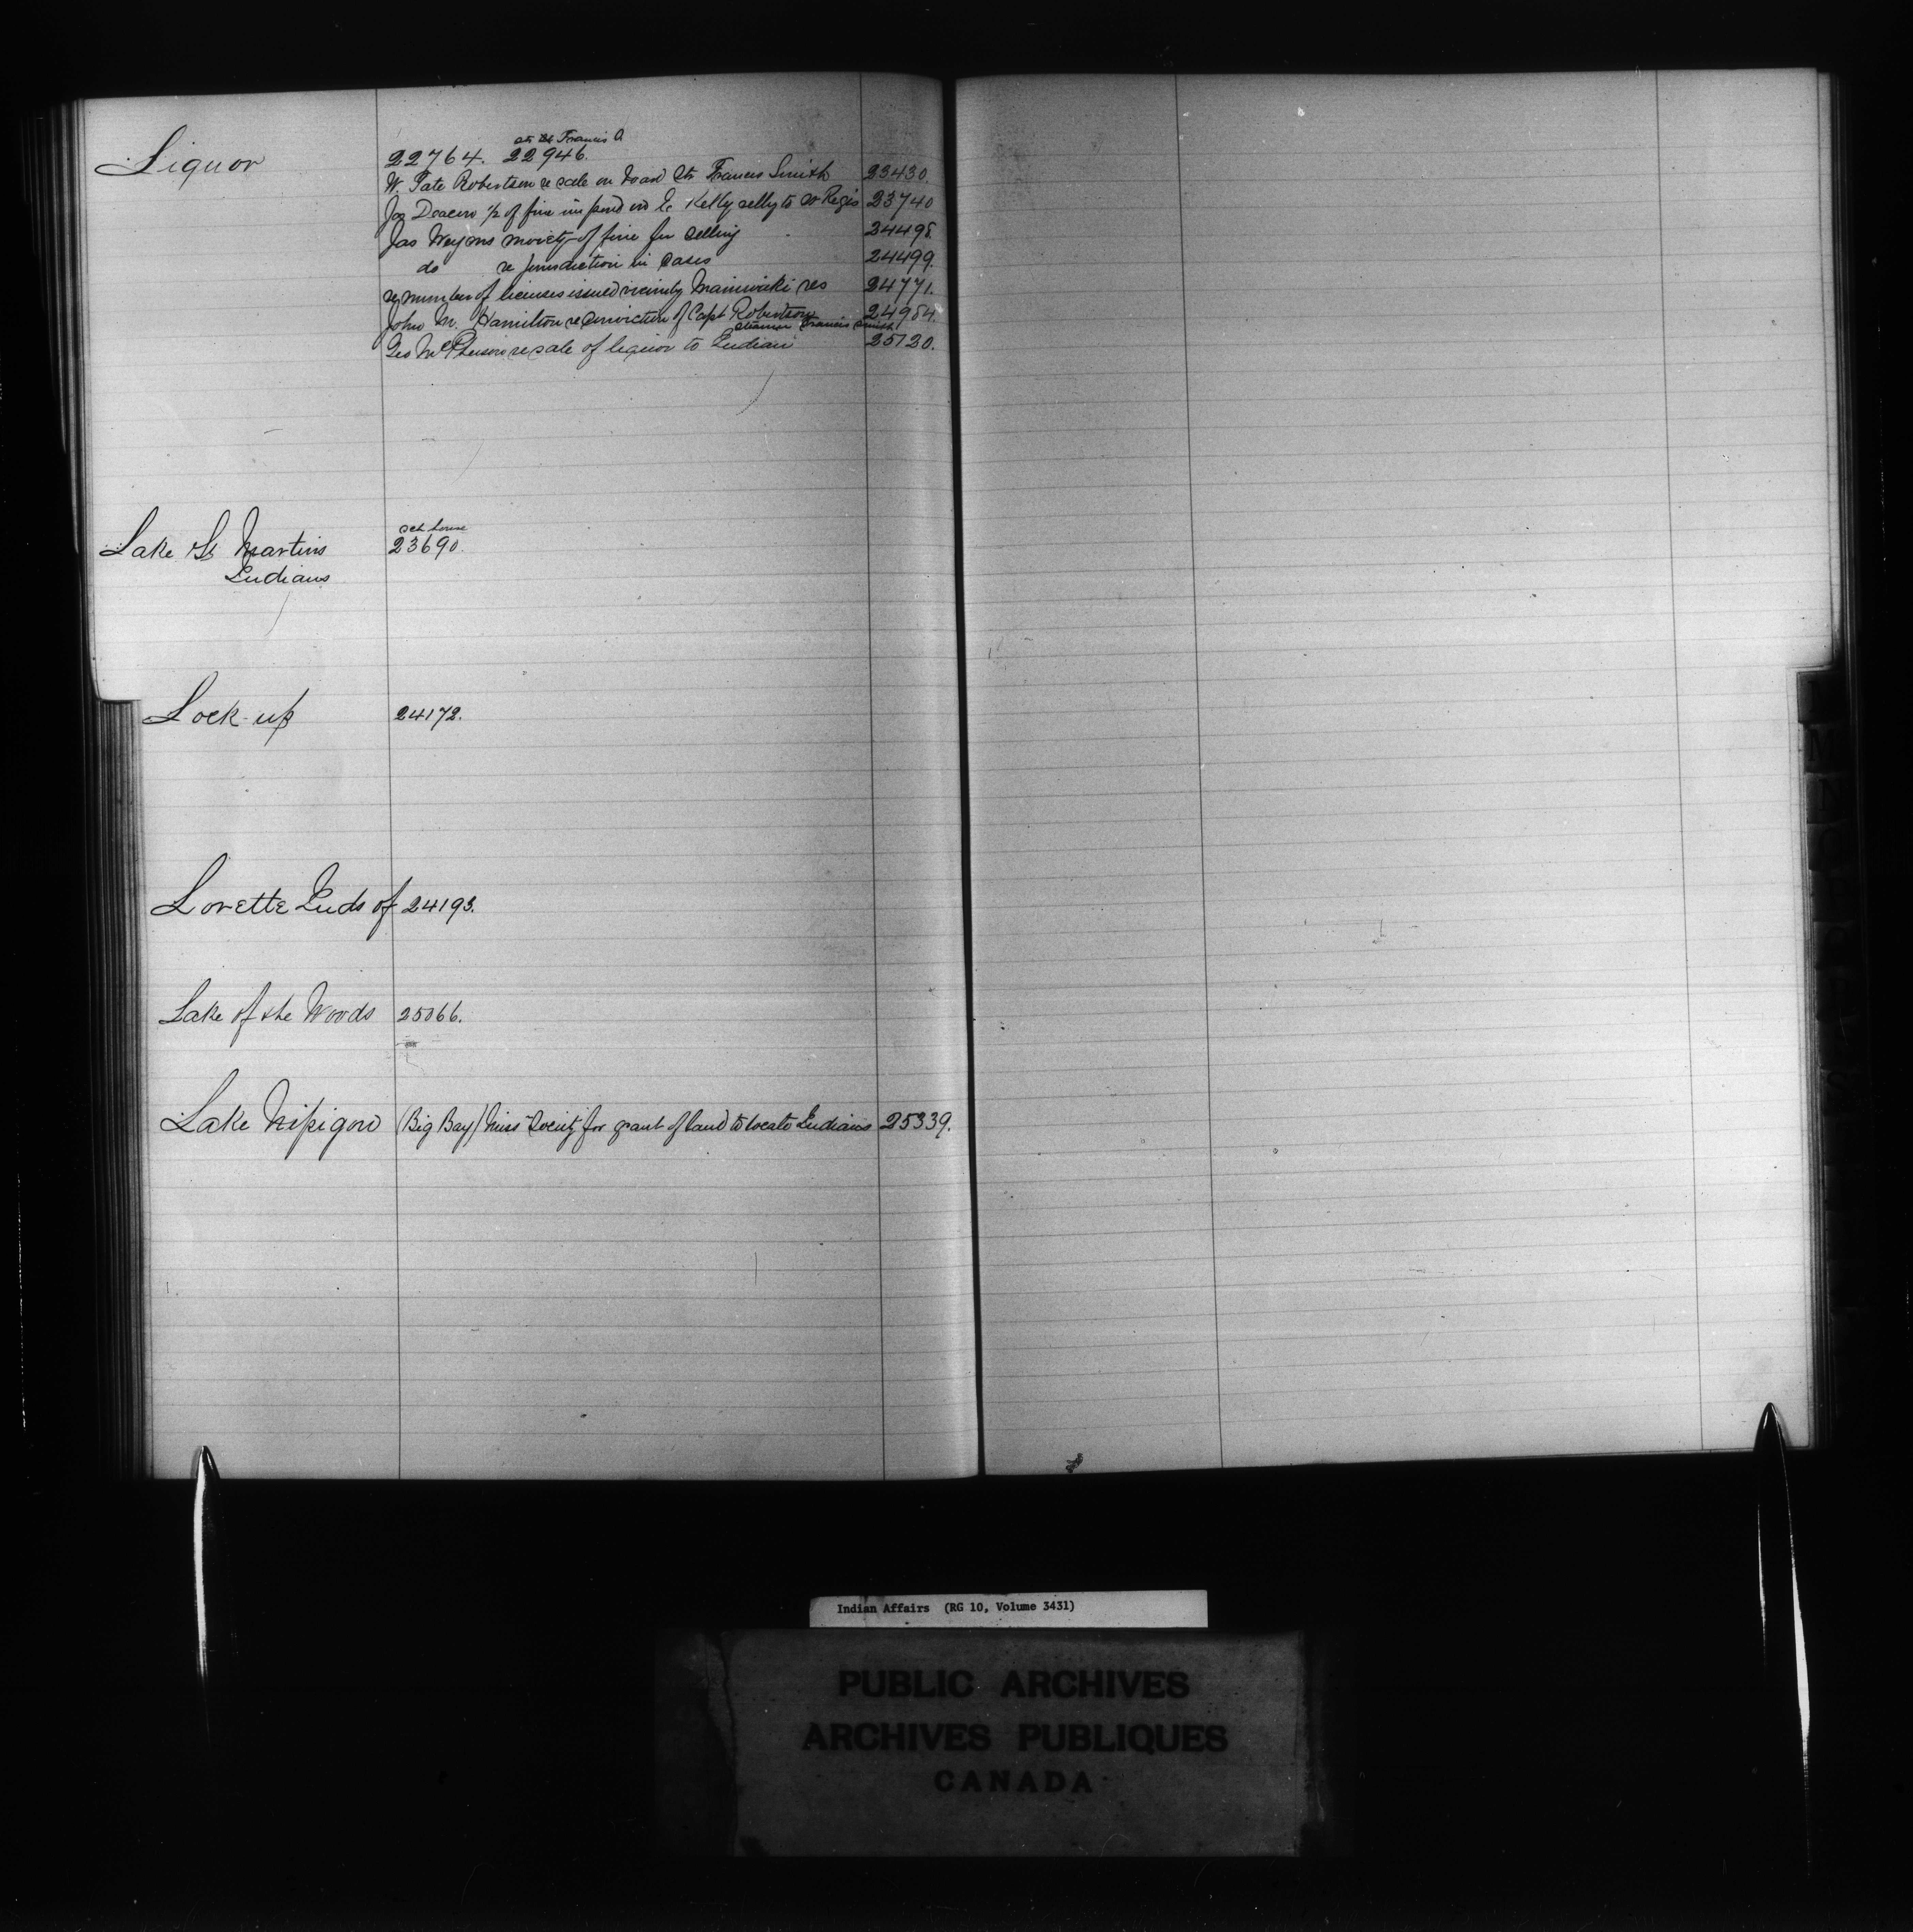 Liquor
at St Francis
22764. 22946.
W. Tate Robertson re sale on board Str Francis Smith 23430.
½ of fine imposed on Kelly selly to St Regis 23740
Jas moiety of fine for selling 24498.
do re jurisdiction in cases 24499.
re number of licenses issued vicinity Maniwaki res 24771.
John M. Hamilton re conviction of Capt Robertson 24984.
steamer Francis Smith
Geo McPherson re sale of liquor to Indian 25120.
Lake St Martins
Indians
sch house
23690.
Lock-up 24172.
Lorette Inds of 24193.
Lake of the Woods 25066.
Lake Nipigon (Big Bay) Miss Society for grant of land to locate Indians 25339.
M
N
Indian Affairs (RG 10, Volume 3431)
PUBLIC ARCHIVES
ARCHIVES PUBLIQUES
CANADA